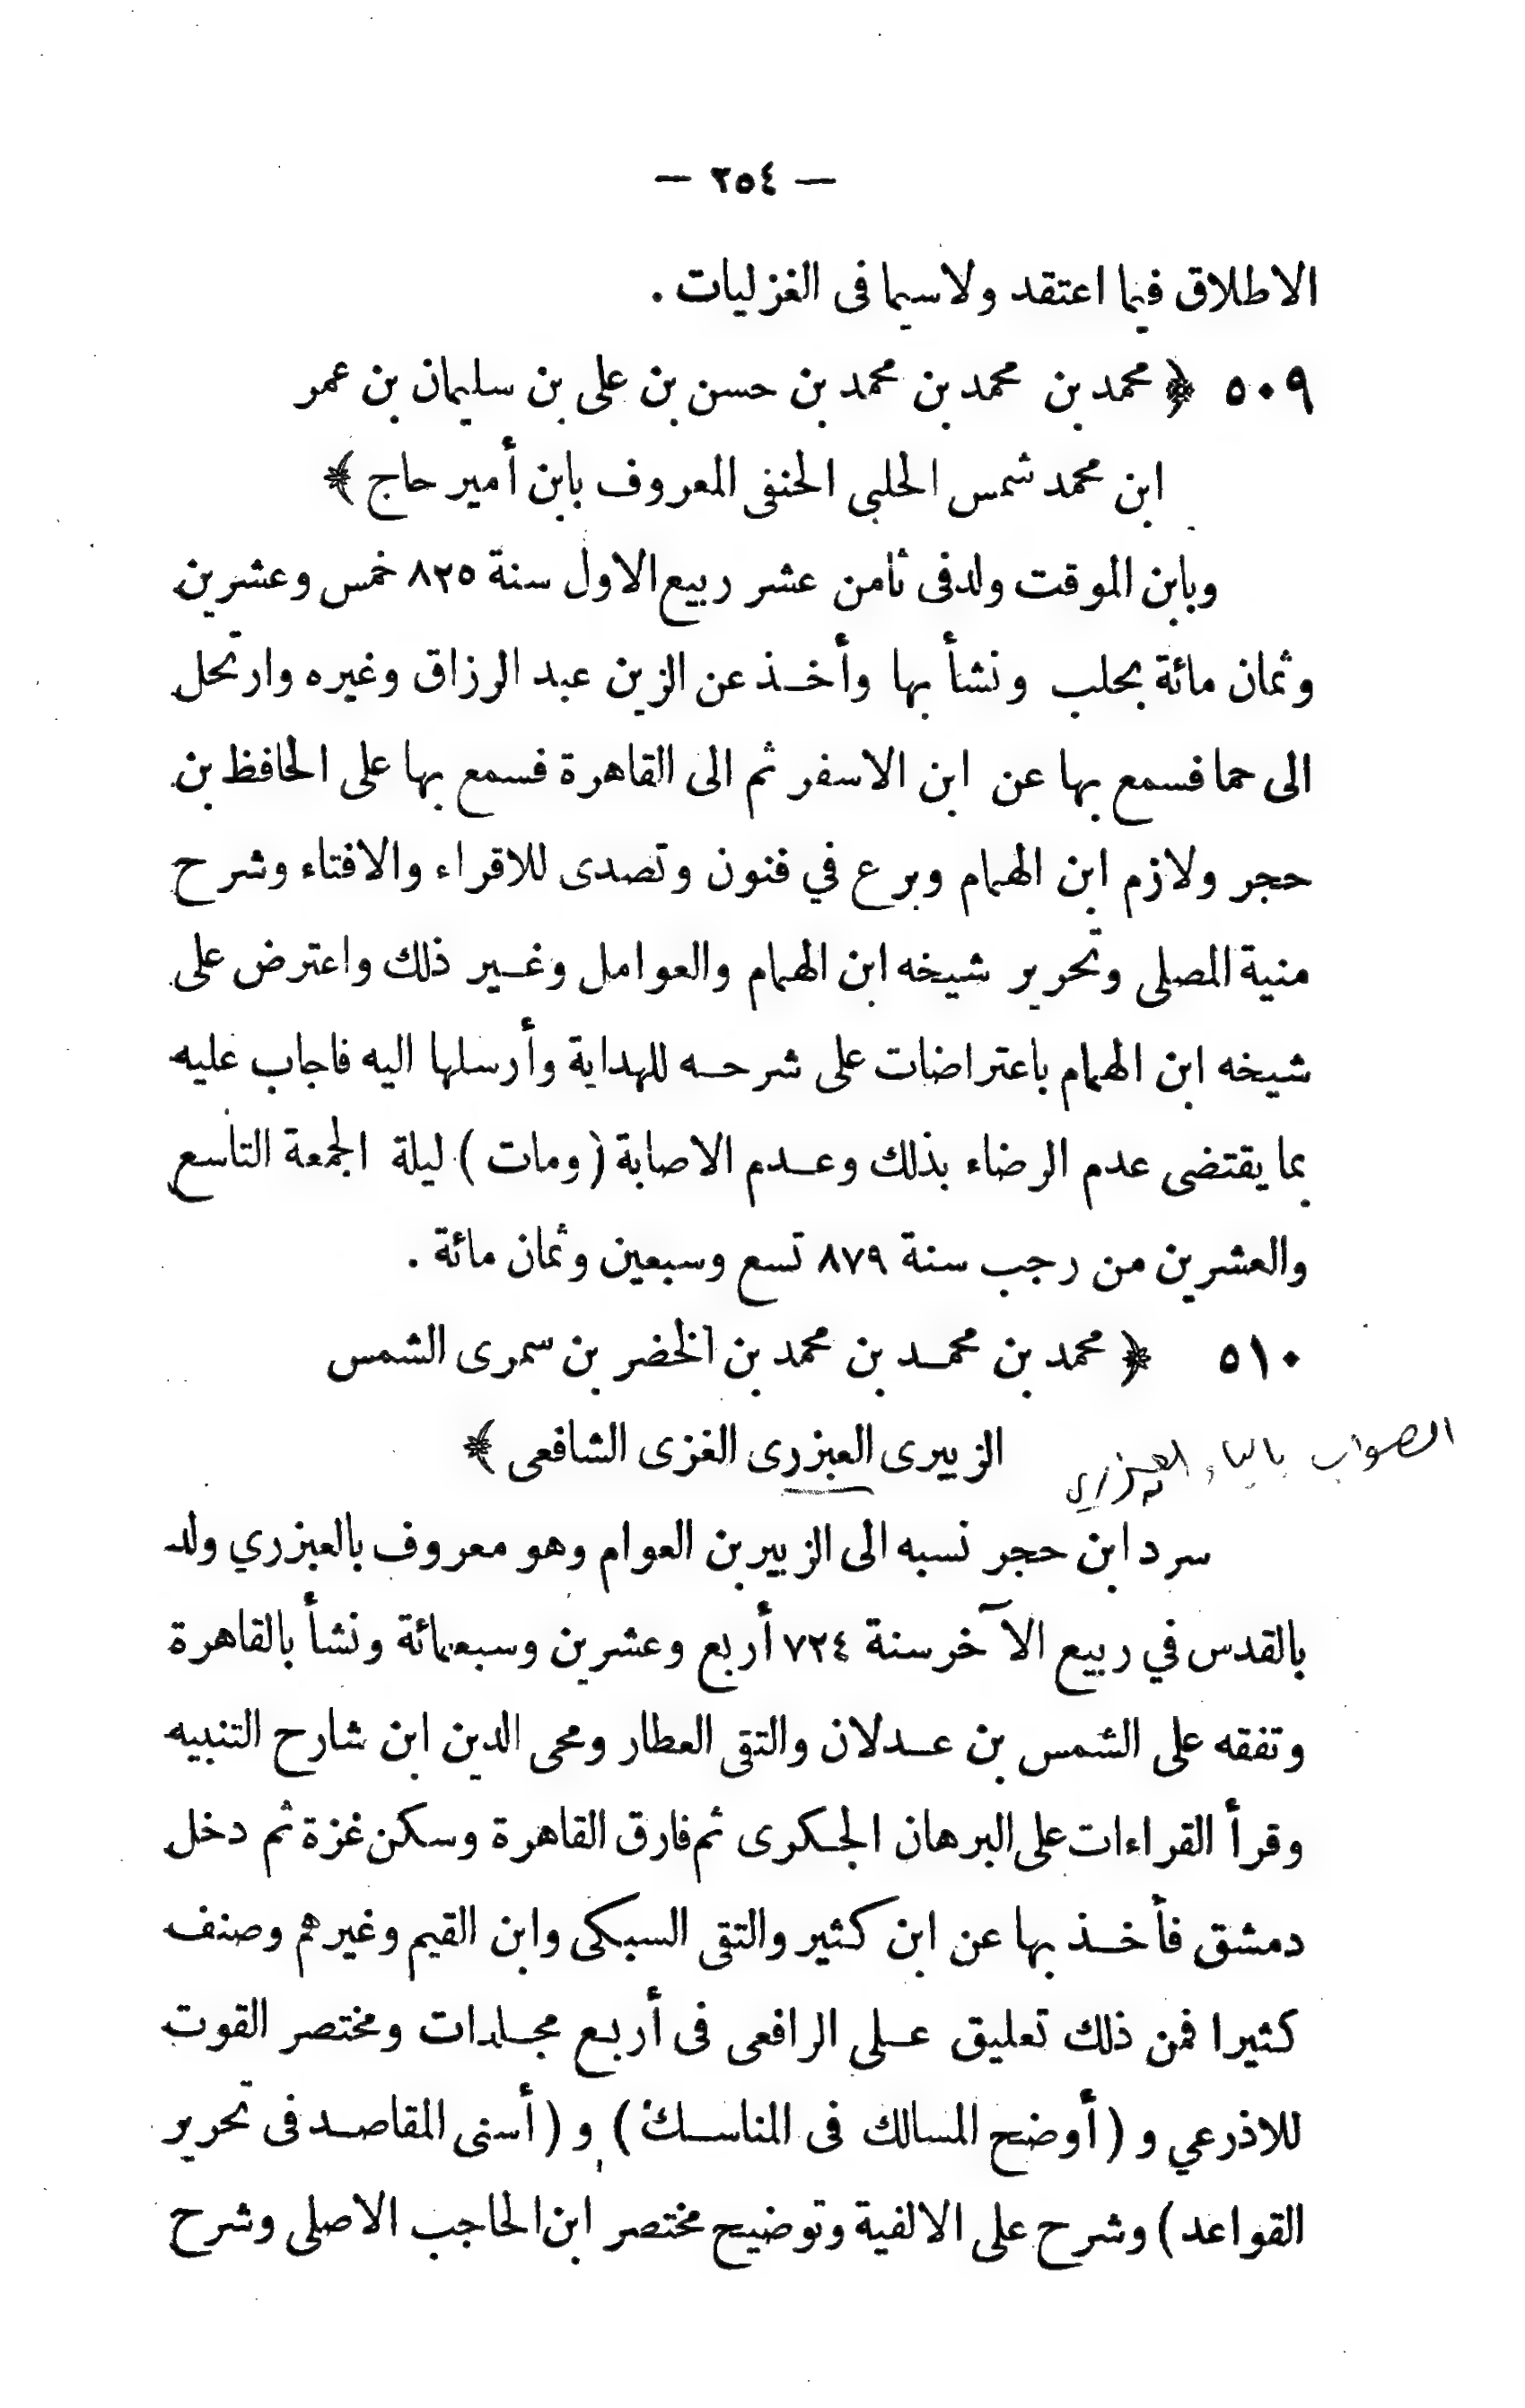 — ٢٥٤ —
الاطلاق فيما اعتقد ولاسيما فى الغزليات .
٥٠٩ ﴿ محمد بن محمد بن محمد بن حسن بن على بن سليمان بن عمر
ابن محمد شمس الحلبى الحنفى المعروف بابن أمير حاج ﴾
وبابن الموقت ولد فى ثامن عشر ربيع الاول سنة ٨٢٥ خمس وعشرين
وثمان مائة بحلب ونشأ بها وأخذ عن الزين عبد الرزاق وغيره وارتحل
الى حما فسمع بها عن ابن الاسفر ثم الى القاهرة فسمع بها على الحافظ بن
حجر ولازم ابن الهمام وبرع في فنون وتصدى للاقراء والافتاء وشرح
منية المصلى وتحرير شيخه ابن الهمام والعوامل وغير ذلك واعترض على
شيخه ابن الهمام باعتراضات على شرحه للهداية وأرسلها اليه فاجاب عليه
بما يقتضى عدم الرضاء بذلك وعدم الاصابة (ومات) ليلة الجمعة التاسع
والعشرين من رجب سنة ٨٧٩ تسع وسبعين وثمان مائة .
٥١٠ ﴿ محمد بن محمد بن محمد بن الخضر بن سمرى الشمس
الزبيرى العبزرى الغزى الشافعى ﴾
الصواب بالياء العيزري
سرد ابن حجر نسبه الى الزبير بن العوام وهو معروف بالعبزري ولد
بالقدس في ربيع الآخر سنة ٧٢٤ أربع وعشرين وسبعمائة ونشأ بالقاهرة
وتفقه على الشمس بن عدلان والتقى العطار ومحى الدين ابن شارح التنبيه
وقرأ القراءات على البرهان الجكرى ثم فارق القاهرة وسكن غزة ثم دخل
دمشق فأخذ بها عن ابن كثير والتقى السبكى وابن القيم وغيرهم وصنف
كثيرا فمن ذلك تعليق على الرافعى فى أربع مجلدات ومختصر القوت
للاذرعي و (أوضح المسالك فى المناسك) و (أسنى المقاصد فى تحرير
القواعد) وشرح على الالفية وتوضيح مختصر ابن الحاجب الاصلى وشرح